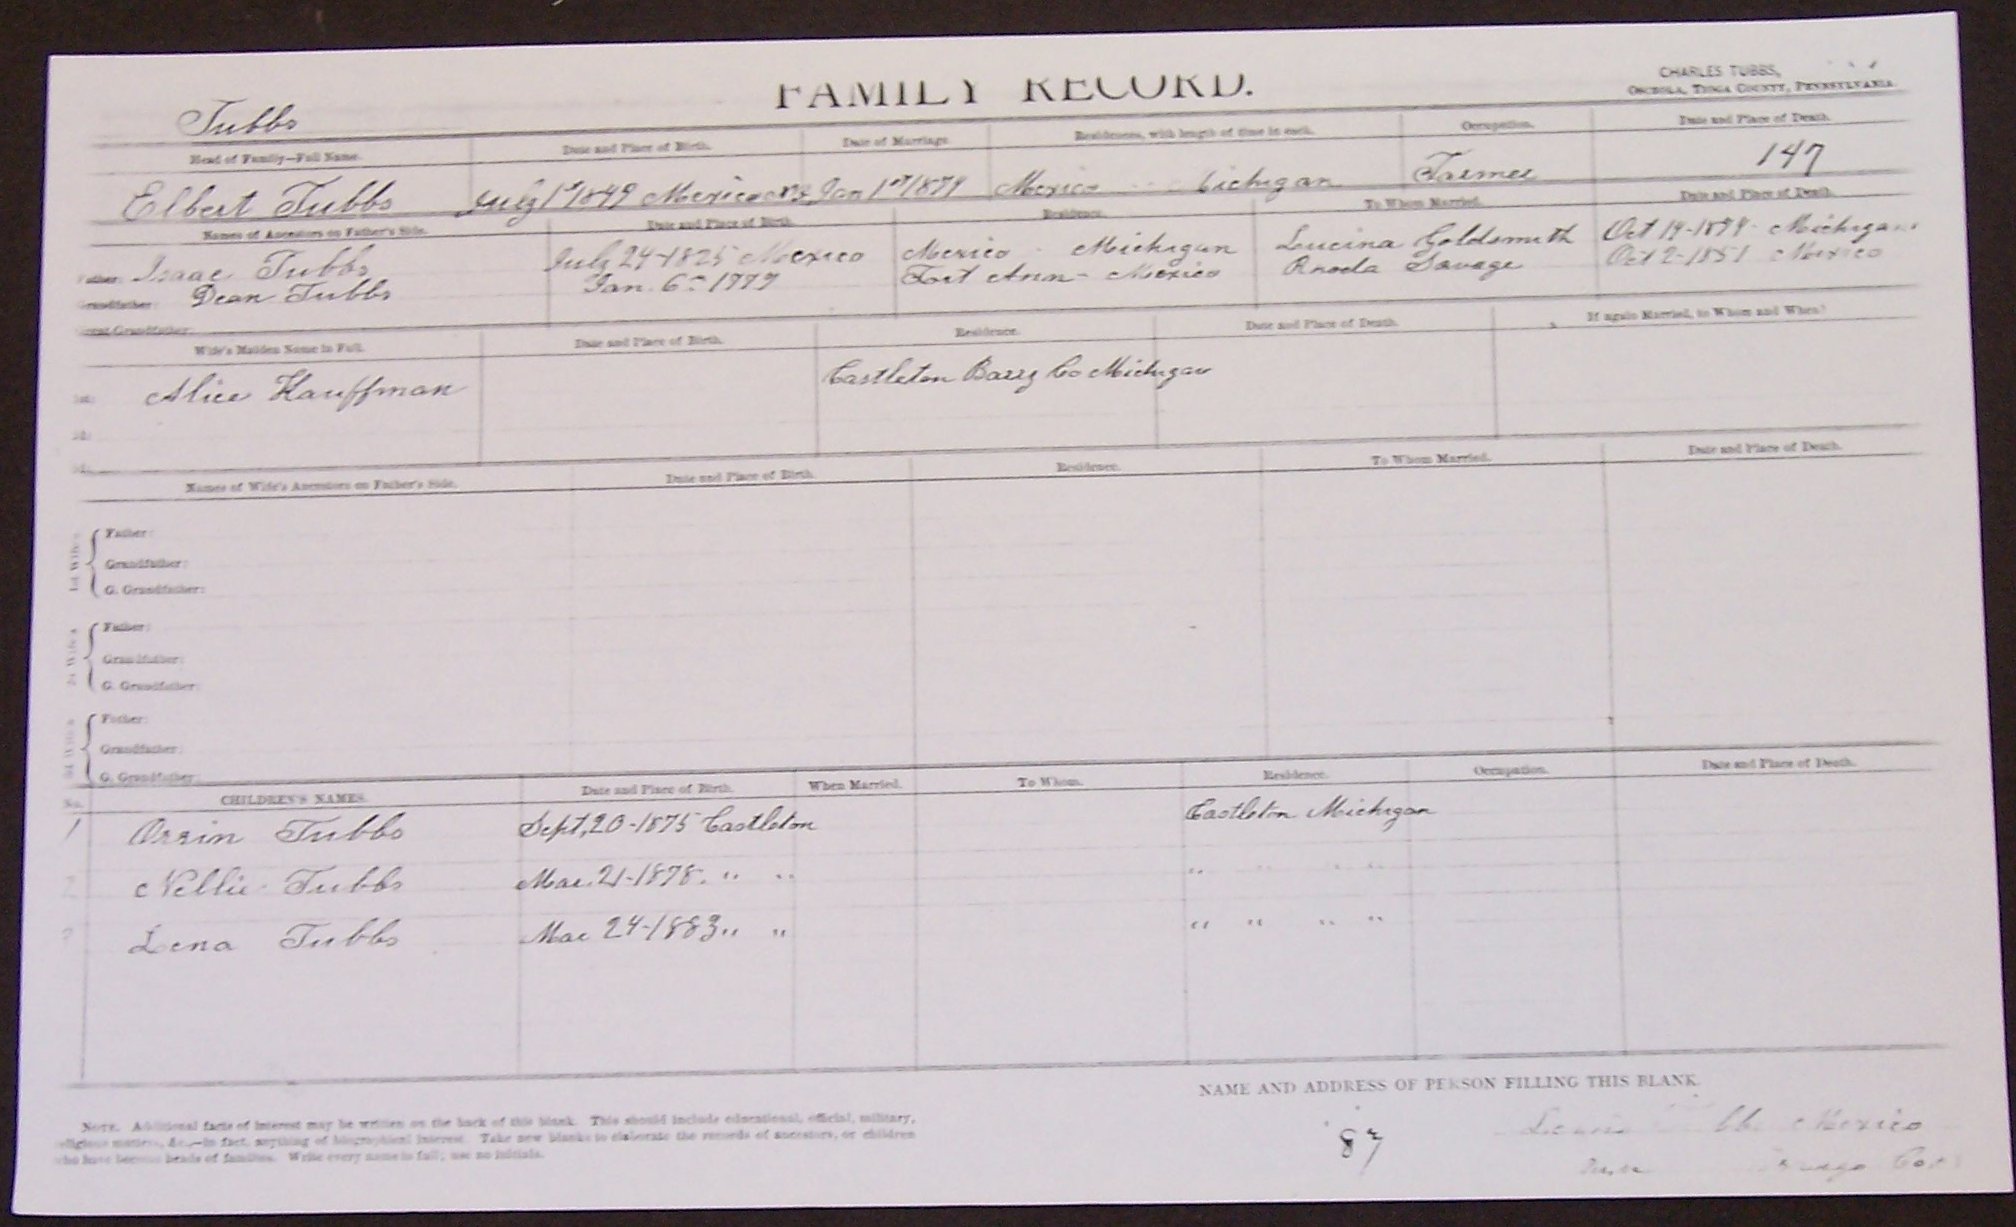 FAMILY RECORD.
CHARLES TUBBS,
OSCEOLA, TIOGA COUNTY, PENNSYLVANIA.
Tubbs
Head of Family—Full Name. Date and Place of Birth. Date of Marriage. Residences, with length of time in each. Occupation. Date and Place of Death.
147
Elbert Tubbs July 1st 1849 Mexico NY Jan 1st 1874 Mexico Michigan Farmer
Names of Ancestors on Father's Side. Date and Place of Birth. Residence. To Whom Married. Date and Place of Death.
Father: Isaac Tubbs July 24-1825 Mexico Mexico - Michigan Lucina Goldsmith Oct 19- Michigan
Grandfather: Dean Tubbs Jan. 6 - Fort Ann - Mexico Savage Oct 2-1851 Mexico
Great-Grandfather:
Wife's Maiden Name in Full. Date and Place of Birth. Residence. Date and Place of Death. If again Married, to Whom and When?
1st: Alice Kauffman Castleton Barry Co Michigan
2d:
3d:
Names of Wife's Ancestors on Father's Side. Date and Place of Birth. Residence. To Whom Married. Date and Place of Death.
1st Wife's
Father:
Grandfather:
G. Grandfather:
2d Wife's
Father:
Grandfather:
G. Grandfather:
3d Wife's
Father:
Grandfather:
G. Grandfather:
No. CHILDREN'S NAMES. Date and Place of Birth. When Married. To Whom. Residence. Occupation. Date and Place of Death.
1 Orrin Tubbs Sept, 20-1875 Castleton Castleton Michigan
2 Nellie Tubbs Mar. 21-1878. " " " " " "
3 Lena Tubbs Mar 24-1883 " " " " " "
NAME AND ADDRESS OF PERSON FILLING THIS BLANK.
NOTE. Additional facts of interest may be written on the back of this blank. This should include educational, official, military,
religious matters, &c.—in fact, anything of biographical interest. Take new blanks to elaborate the records of ancestors, or children
who have become heads of families. Write every name in full; use no initials.
87
Mexico